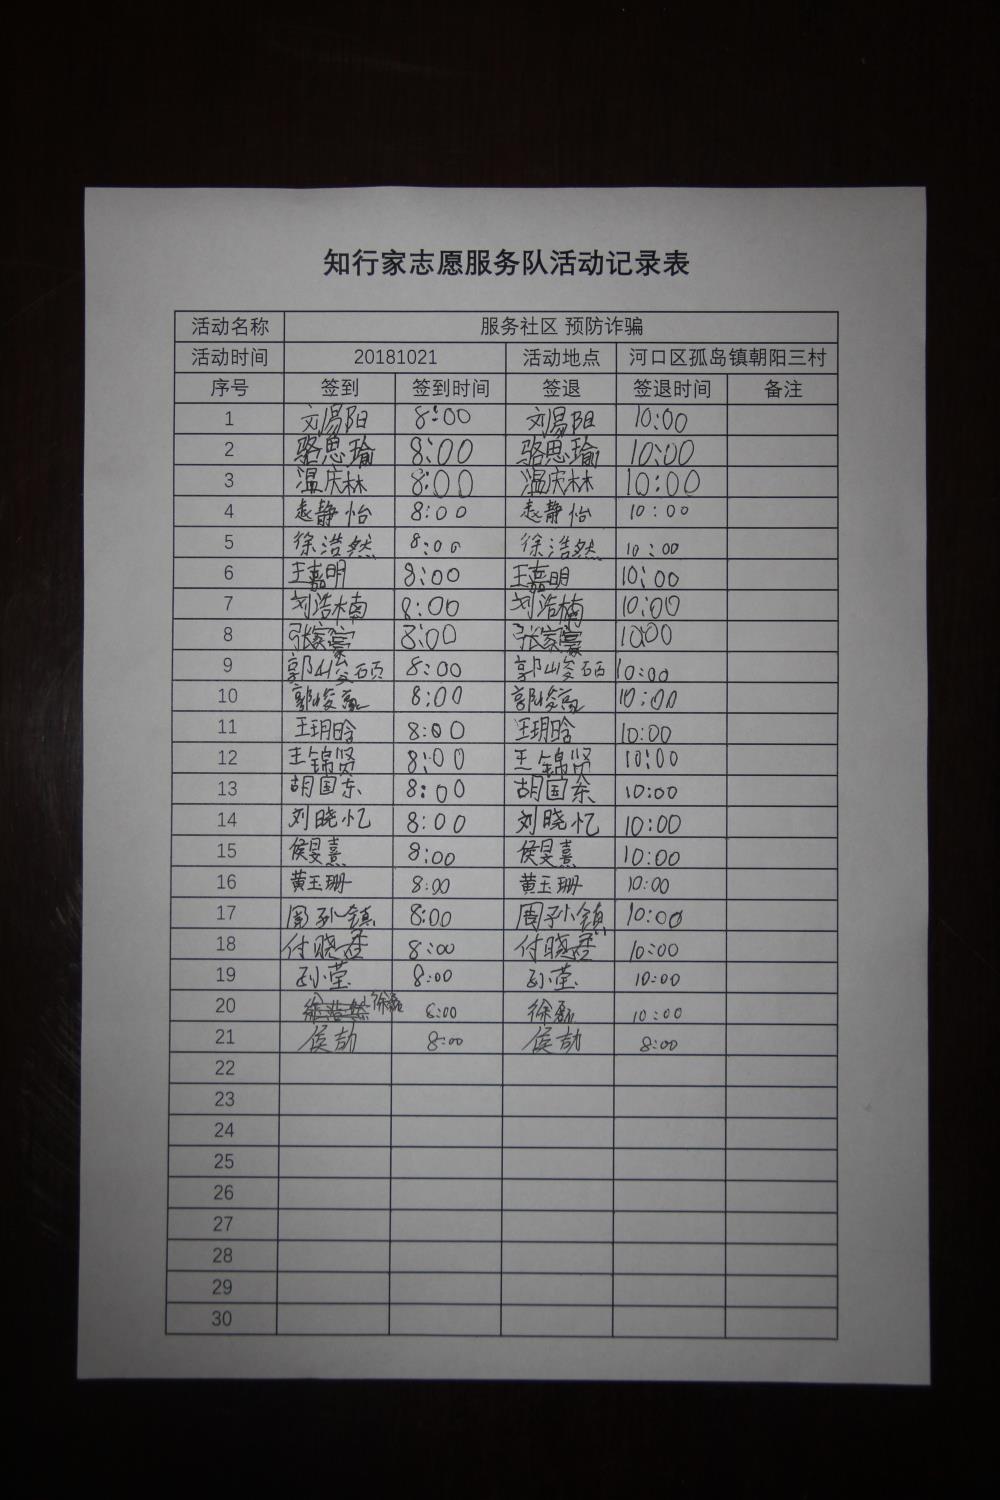 知行家志愿服务队活动记录表
活动名称 服务社区 预防诈骗
活动时间 20181021 活动地点 河口区孤岛镇朝阳三村
序号 签到 签到时间 签退 签退时间 备注
1 刘易阳 8:00 刘易阳 10:00
2 骆思瑜 8:00 骆思瑜 10:00
3 温庆林 8:00 温庆林 10:00
4 袁静怡 8:00 袁静怡 10:00
5 徐浩然 8:00 徐浩然 10:00
6 王嘉明 8:00 王嘉明 10:00
7 刘浩楠 8:00 刘浩楠 10:00
8 张家豪 8:00 张家豪 10:00
9 郭峻硕 8:00 郭峻硕 10:00
10 郭峻 8:00 郭峻 10:00
11 王玥晗 8:00 王玥晗 10:00
12 王锦贤 8:00 王锦贤 10:00
13 胡国东 8:00 胡国东 10:00
14 刘晓忆 8:00 刘晓忆 10:00
15 侯旻熹 8:00 侯旻熹 10:00
16 黄玉珊 8:00 黄玉珊 10:00
17 周孙镇 8:00 周孙镇 10:00
18 付晓 8:00 付晓 10:00
19 孙莹 8:00 孙莹 10:00
20 徐磊 8:00 徐磊 10:00
21 侯劼 8:00 侯劼 8:00
22
23
24
25
26
27
28
29
30